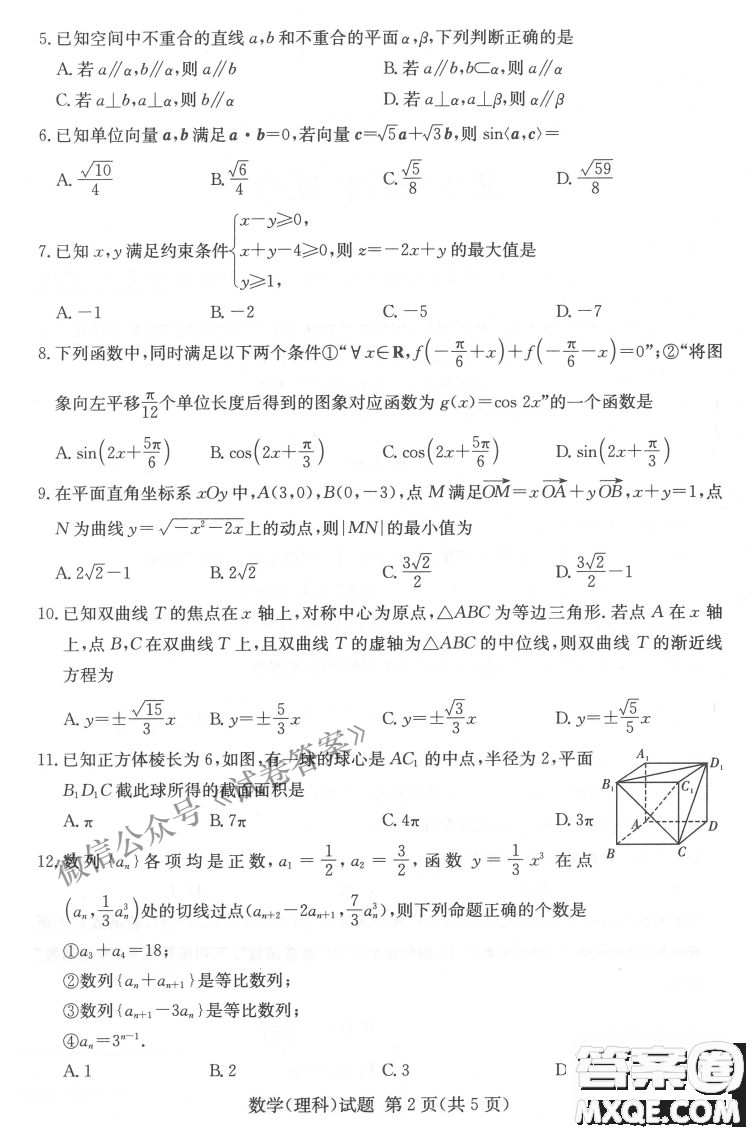 5. 已知空间中不重合的直线 a,b 和不重合的平面 α,β,下列判断正确的是
A. 若 a∥α,b∥α,则 a∥b B. 若 a∥b,b⊂α,则 a∥α
C. 若 a⊥b,a⊥α,则 b∥α D. 若 a⊥α,a⊥β,则 α∥β
6. 已知单位向量 a,b 满足 a·b=0,若向量 c=√5a+√3b,则 sin⟨a,c⟩=
A. √10/4 B. √6/4 C. √5/8 D. √59/8
7. 已知 x,y 满足约束条件{x−y≥0, x+y−4≥0, y≥1, 则 z=−2x+y 的最大值是
A. −1 B. −2 C. −5 D. −7
8. 下列函数中,同时满足以下两个条件①“∀x∈R,f(−π/6+x)+f(−π/6−x)=0”;②“将图
象向左平移π/12个单位长度后得到的图象对应函数为 g(x)=cos 2x”的一个函数是
A. sin(2x+5π/6) B. cos(2x+π/3) C. cos(2x+5π/6) D. sin(2x+π/3)
9. 在平面直角坐标系 xOy 中,A(3,0),B(0,−3),点 M 满足OM→=xOA→+yOB→,x+y=1,点
N 为曲线 y=√(−x²−2x)上的动点,则|MN|的最小值为
A. 2√2−1 B. 2√2 C. 3√2/2 D. 3√2/2−1
10. 已知双曲线 T 的焦点在 x 轴上,对称中心为原点,△ABC 为等边三角形. 若点 A 在 x 轴
上,点 B,C 在双曲线 T 上,且双曲线 T 的虚轴为△ABC 的中位线,则双曲线 T 的渐近线
方程为
A. y=±√15/3 x B. y=±5/3 x C. y=±√3/3 x D. y=±√5/5 x
11. 已知正方体棱长为 6,如图,有一球的球心是 AC₁ 的中点,半径为 2,平面
B₁D₁C 截此球所得的截面面积是
A. π B. 7π C. 4π D. 3π
A₁ D₁
B₁ C₁
A D
B C
12. 数列{aₙ}各项均是正数,a₁=1/2,a₂=3/2,函数 y=1/3 x³ 在点
(aₙ,1/3 aₙ³)处的切线过点(aₙ₊₂−2aₙ₊₁,7/3 aₙ³),则下列命题正确的个数是
①a₃+a₄=18;
②数列{aₙ+aₙ₊₁}是等比数列;
③数列{aₙ₊₁−3aₙ}是等比数列;
④aₙ=3ⁿ⁻¹.
A. 1 B. 2 C. 3 D
数学(理科)试题 第 2 页(共 5 页)
微信公众号《试卷答案》
答案卷
MXQE.COM